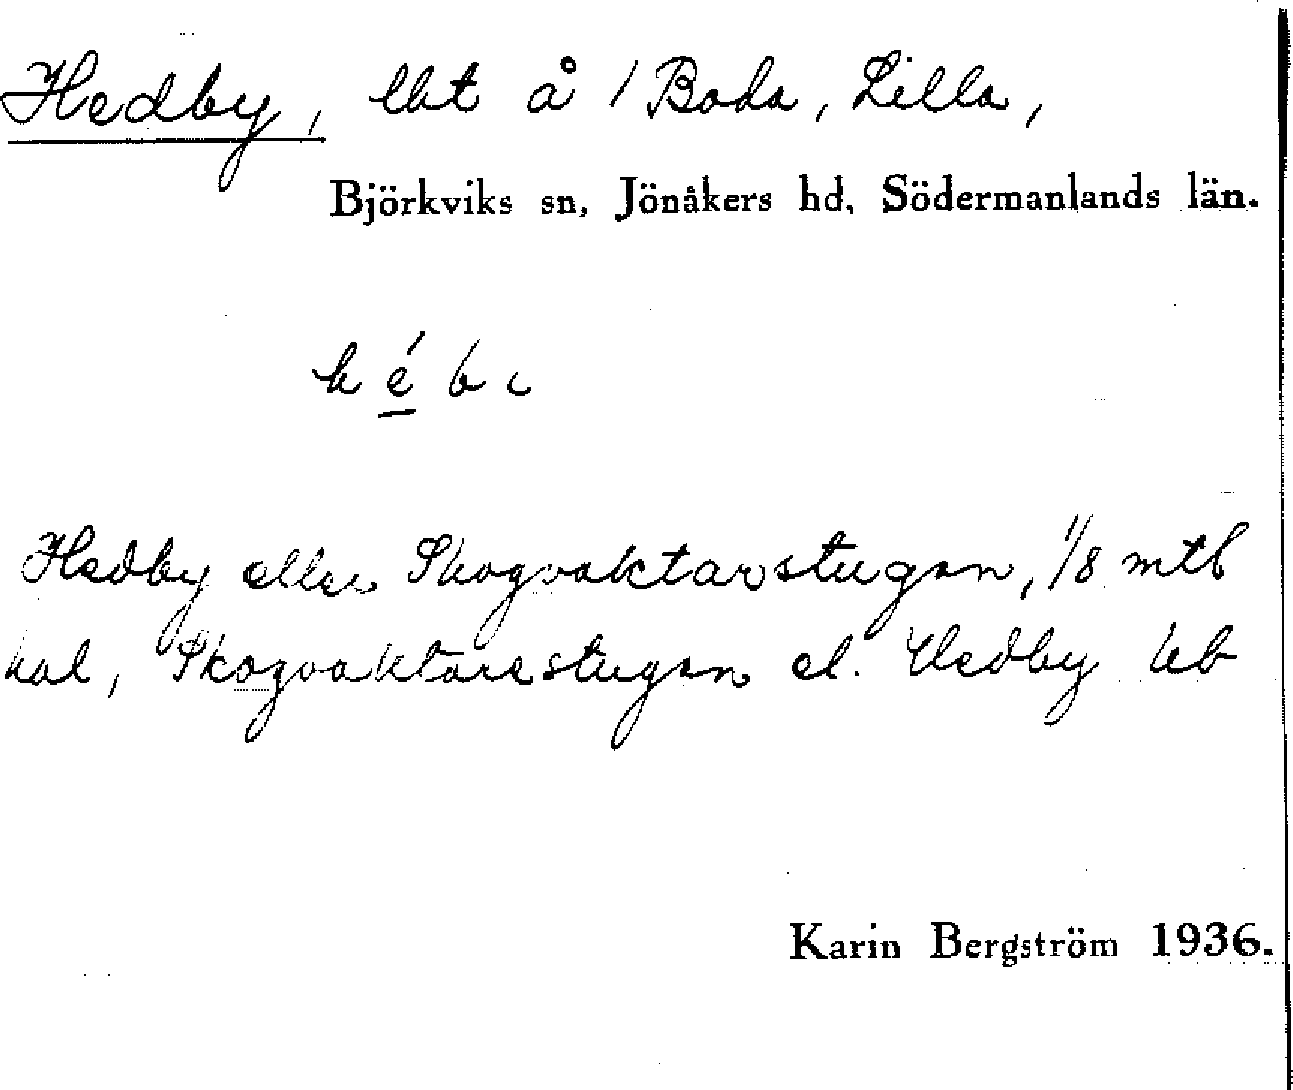 Hedby, lht å / Boda, Lilla,
Björkviks sn, Jönåkers hd, Södermanlands län.
h é b ι
Hedby eller Skogvaktarstugan, 1/8 mtl
kal, Skogvaktarestugan el. Hedby kb
Karin Bergström 1936.